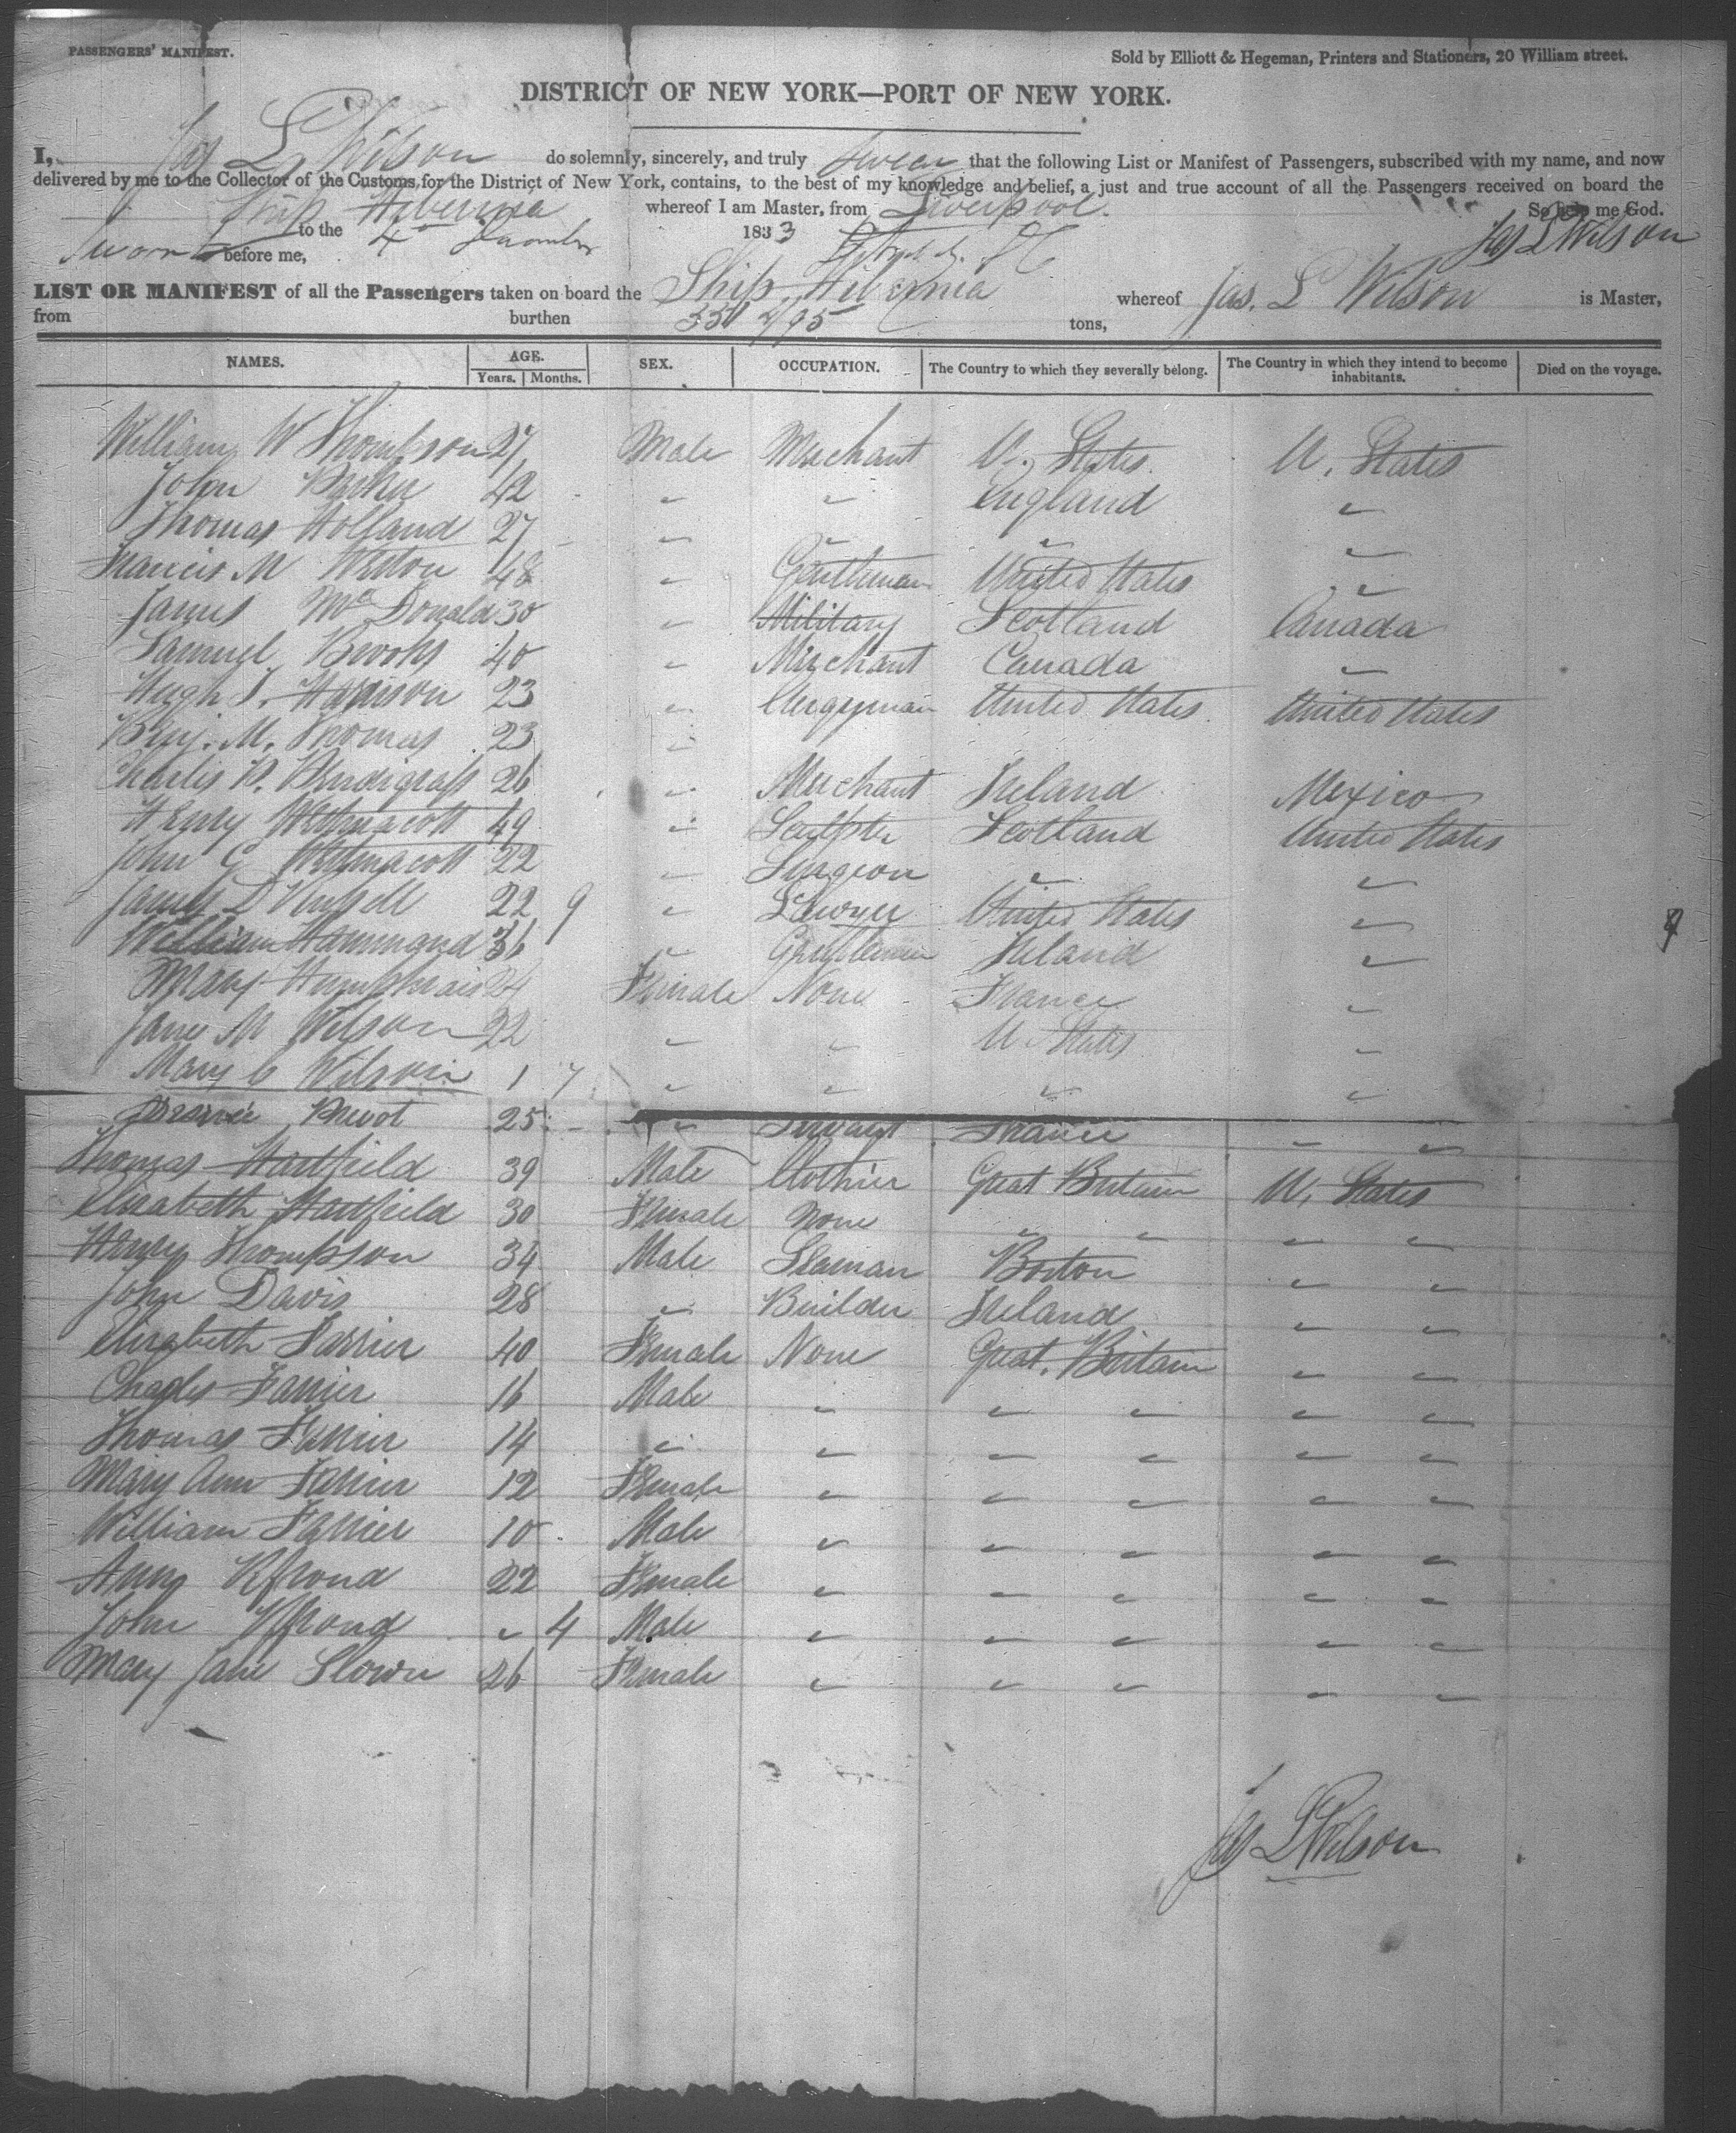 PASSENGERS' MANIFEST.
Sold by Elliott & Hegeman, Printers and Stationers, 20 William street.
DISTRICT OF NEW YORK—PORT OF NEW YORK.
I, Jas L Wilson do solemnly, sincerely, and truly swear that the following List or Manifest of Passengers, subscribed with my name, and now
delivered by me to the Collector of the Customs for the District of New York, contains, to the best of my knowledge and belief, a just and true account of all the Passengers received on board the
Ship Hibernia whereof I am Master, from Liverpool. So help me God.
Sworn to the 4 December 1833 Jas L Wilson
before me,
LIST OR MANIFEST of all the Passengers taken on board the Ship Hibernia whereof Jas. L Wilson is Master,
from burthen 550 /95 tons,
NAMES. AGE. SEX. OCCUPATION. The Country to which they severally belong. The Country in which they intend to become inhabitants. Died on the voyage.
Years. Months.
William W Thompson 27 Male Merchant U. States U. States
John Parker 42 " " England "
Thomas Holland 27 " " " "
Francis M Weston 48 " Gentleman United States "
James McDonald 30 " Military Scotland Canada
Samuel Brooks 40 " Merchant Canada "
Hugh T. Harrison 23 " Clergyman United States United States
Benj. M. Thomas 23 "
Charles P. 26 " Merchant Ireland Mexico
Henry Westmacott 49 " Sculpter Scotland United States
John G Westmacott 22 " Surgeon " "
James D 22 9 " Lawyer United States "
William Hammond 36 " Gentleman Ireland "
Mary 24 Female None France "
Jane M Wilson 22 " " U States "
Mary C Wilson 1 7 " " " "
Prevot 25 " Servant France " "
Thomas Hartfield 39 Male Clothier Great Britain U. States
Elizabeth Hartfield 30 Female None " " " "
Henry Thompson 34 Male Seaman Boston " "
John Davis 28 " Builder Ireland " "
Elizabeth Farrier 40 Female None Great Britain " "
Charles Farrier 16 Male " " " " "
Thomas Farrier 14 " " " " " "
Mary Ann Farrier 12 Female " " " " "
William Farrier 10 Male " " " " "
22 Female " " " " "
John " 4 Male " " " " "
Mary Jane Slown 26 Female " " " " "
Jas L Wilson